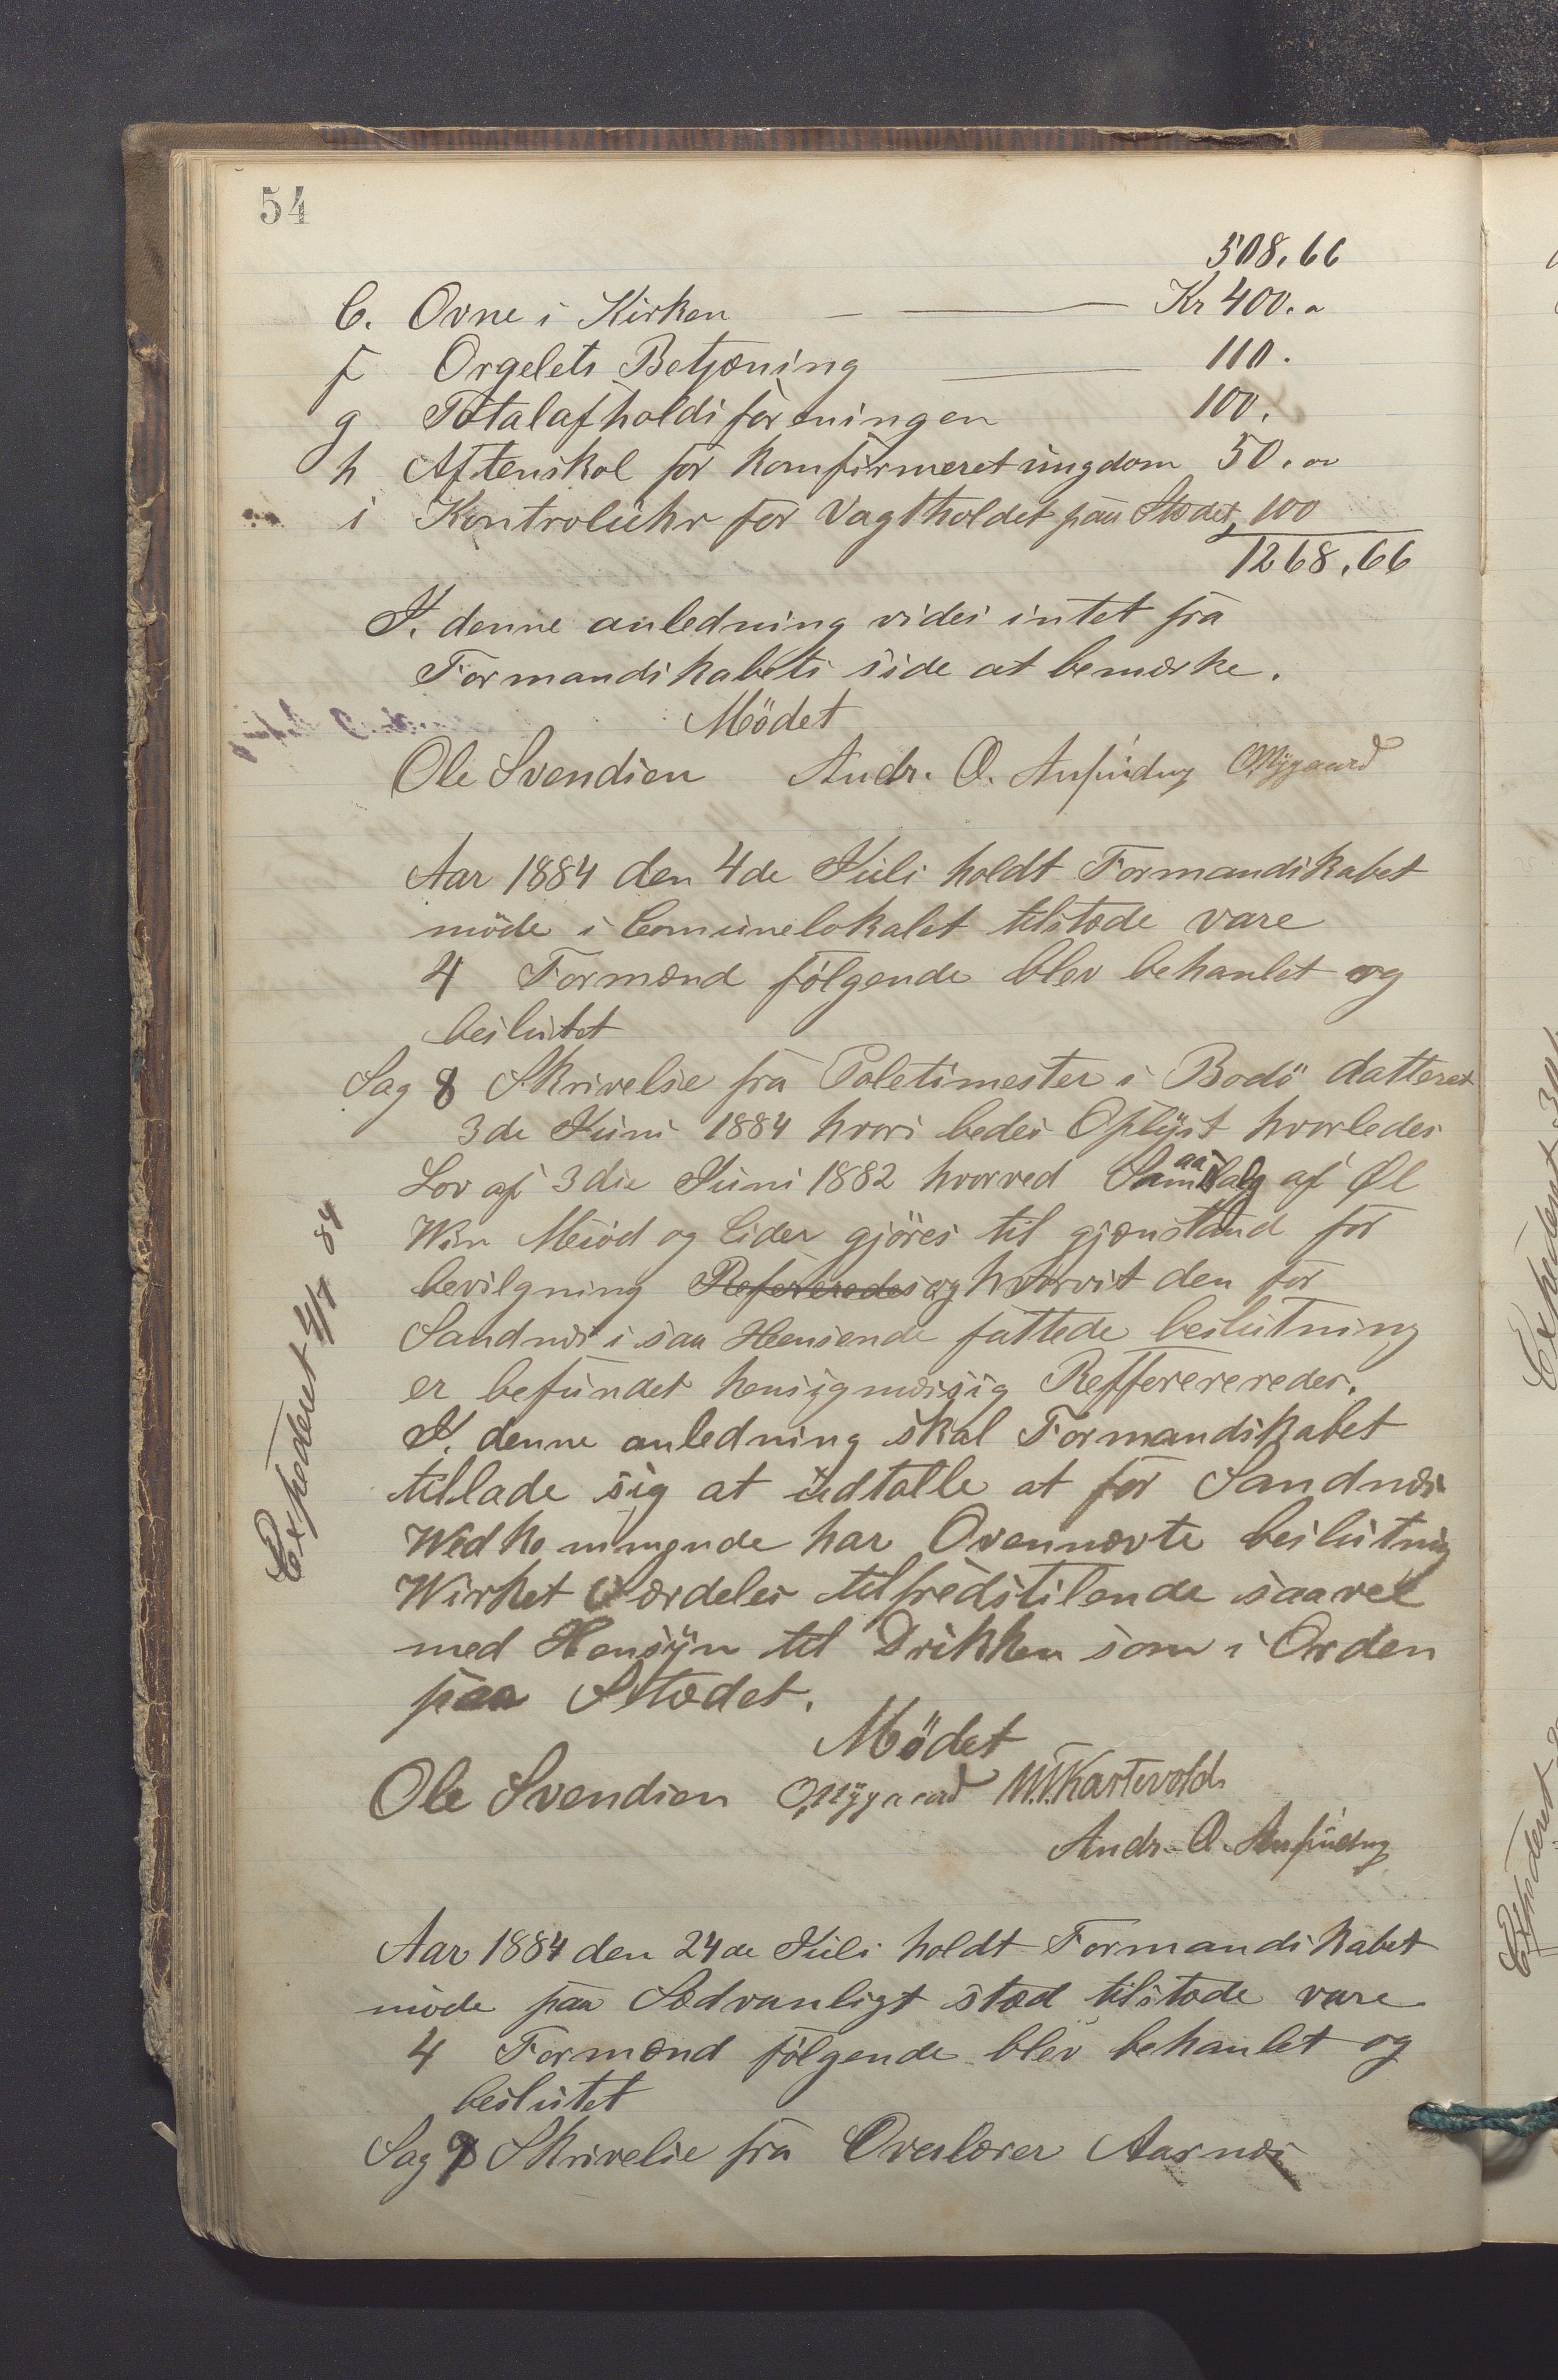 54
508,66
C. Ovne i Kirken — Kr 400.00
f Orgelets Betjæning — 110.
g Totalafholdsforeningen 100.
h Aftenskol for Komfirmeret ungdom 50.00
i Kontroluhr for Vagtholdet paa Stædet, 100
1268,66
I. denne anledning vides intet fra
Formandskabets side at bemærke.
Mödet
Ole Svendsen Andr. O. O. Nygaard
Aar 1884 den 4de Juli holdt Formandskabet
möde i Comunelokalet tilstæde vare
4 Formænd følgende blev behanlet og
beslutet
Sag 8 Skrivelse fra Poletimester i Bodö datteret
3de Juni 1884 hvori bedes Oplyst hvorledes
Lov af 3die Juni 1882 hvorved Smaasalg af Øl
Win Meiöd og Cider gjöres til gjænstand for
bevilgning Refereredes og hvorvit den for
Sandnæs i saa Heensende fattede beslutning
er befundet hensigmæsig Reffererer​edes.
I. denne anledning skal Formandskabet
tillade sig at udtalle at for Sandnæs
Wedkommende har Ovennævte beslutnig
Wirket Særdeles tilfredstilende saavel
med Hensyn til Drikken som i Orden
paa Stædet.
Mödet
Ole Svendsen O. Nygaard M.T. Kartevold
Andr. O.
Aar 1884 den 24de Juli holdt Formandskabet
möde paa Sædvanligt stæd tilstæde vare
4 Formænd følgende blev behanlet og
beslutet
Sag 9 Skrivelse fra Overlærer Aarnæs
Expederet 4/7 84
Expederet
Expederet